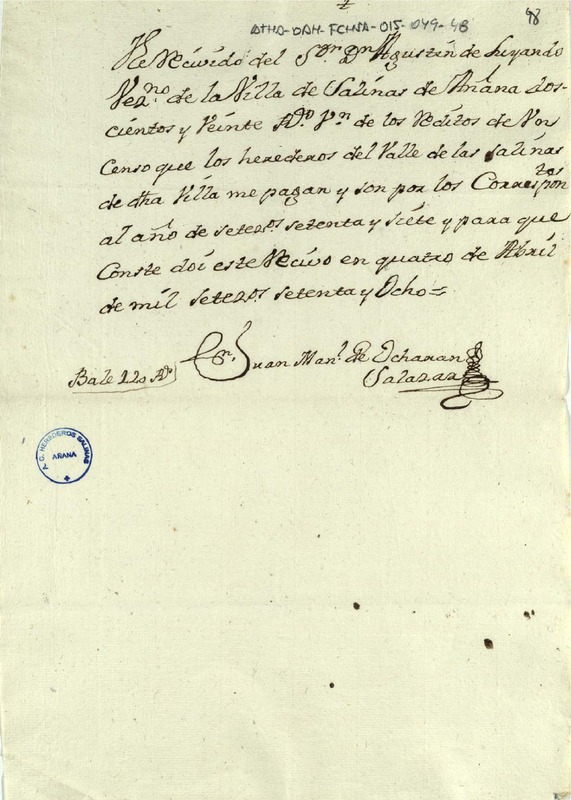 48
ATHA-DAH-FCHSA-015-049-48
He Recivido del Sor. Dn Agustin de Luyando
Vezno. de la Villa de Salinas de Añana dos-
cientos y Veinte Rs. Vn de los Reditos de Vn
Censo que los herederos del Valle de las Salinas
de dha Villa me pagan y son por los Correspontes
al año de setezos setenta y Siete y para que
Conste doi este Recivo en quatro de Abril
de mil setezos setenta y Ocho =
Bale 220 Rs.
Juan Manl. de Ocharan
Salazar
C. HEREDEROS SALINAS
AÑANA